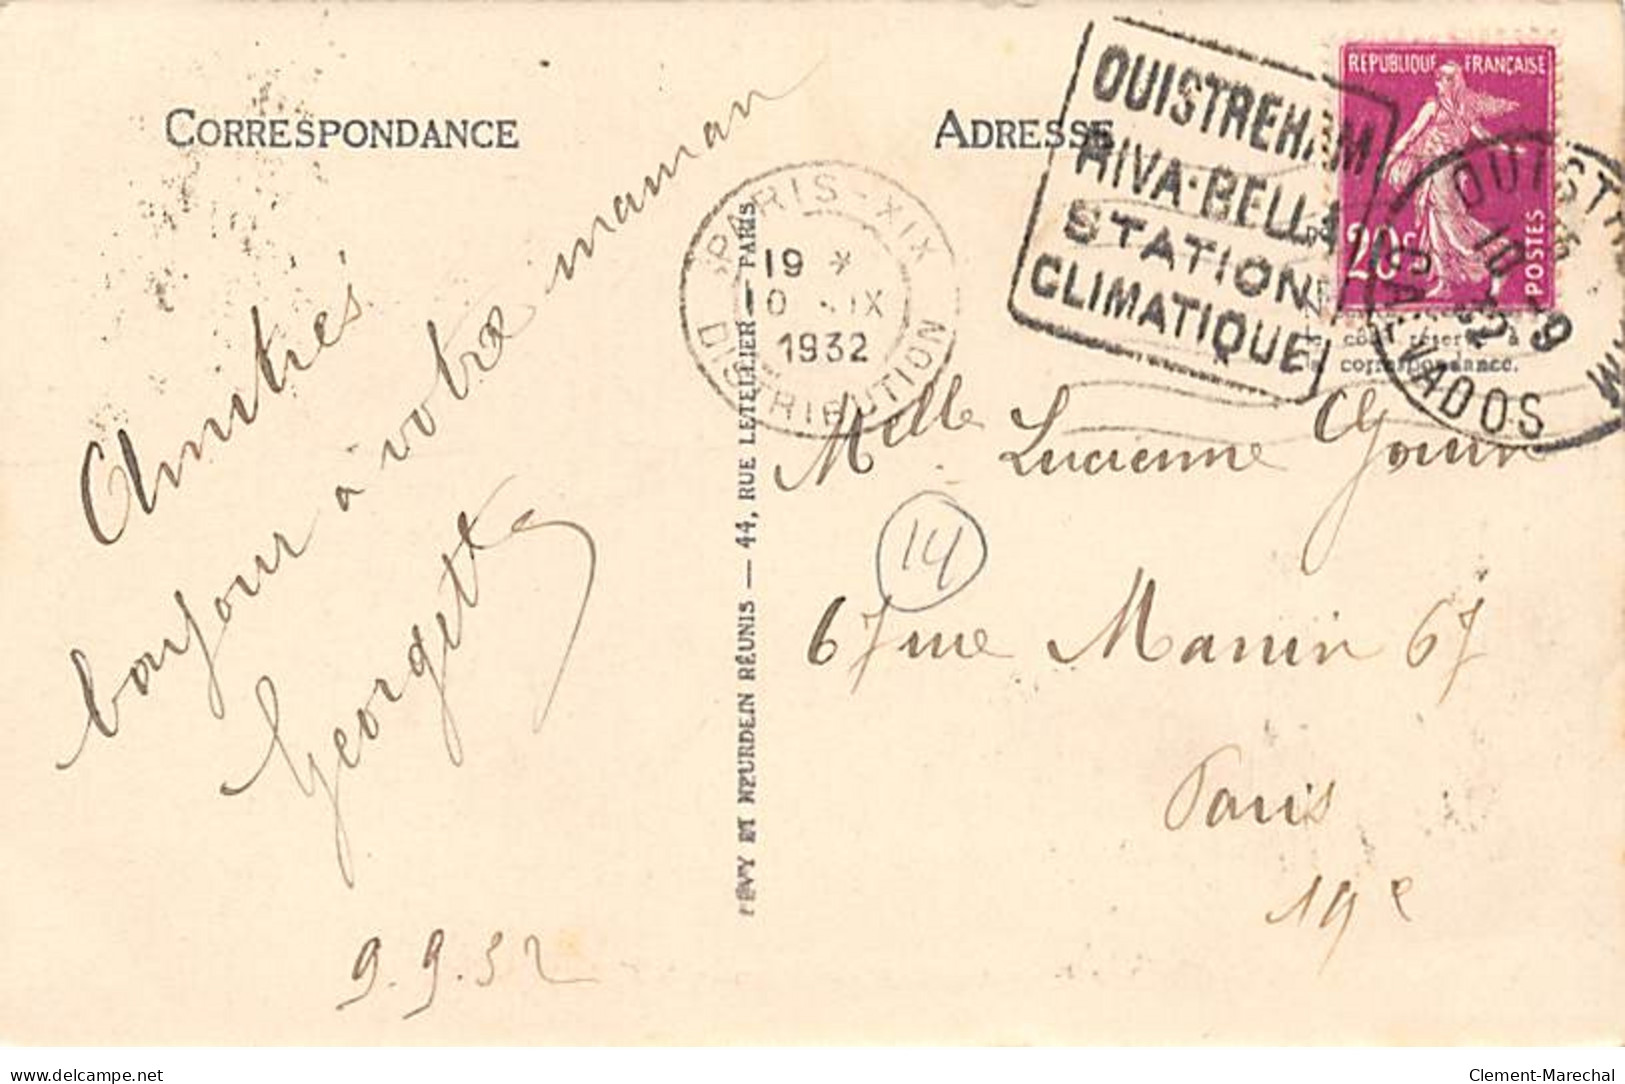 CORRESPONDANCE
Amitiés
bonjour à votre maman
Georgette
9.9.32
LÉVY ET NEURDEIN RÉUNIS — 44, RUE LETELLIER — PARIS
ADRESSE
PARIS-XIX
19 *
IX
1932
DISTRIBUTION
OUISTREHAM
RIVA-BELLA
STATION
CLIMATIQUE
REPUBLIQUE FRANÇAISE
20c
POSTES
OUISTREHAM
10
-9
32
CALVADOS
le côté réservé à
la correspondance.
Melle Lucienne
14
67 rue Manin 67
Paris
19e
delcampe.net
Clement-Marechal